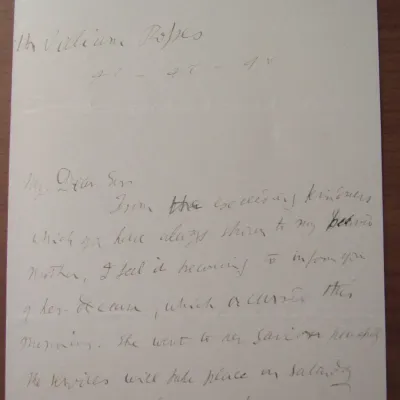 Mr William
My Dear Sir
From the exceeding kindness
which you have always shown to my
mother, I feel it becoming to inform you
of her decease, which occurred this
morning. She went to her Savior
The services will take place on Saturday